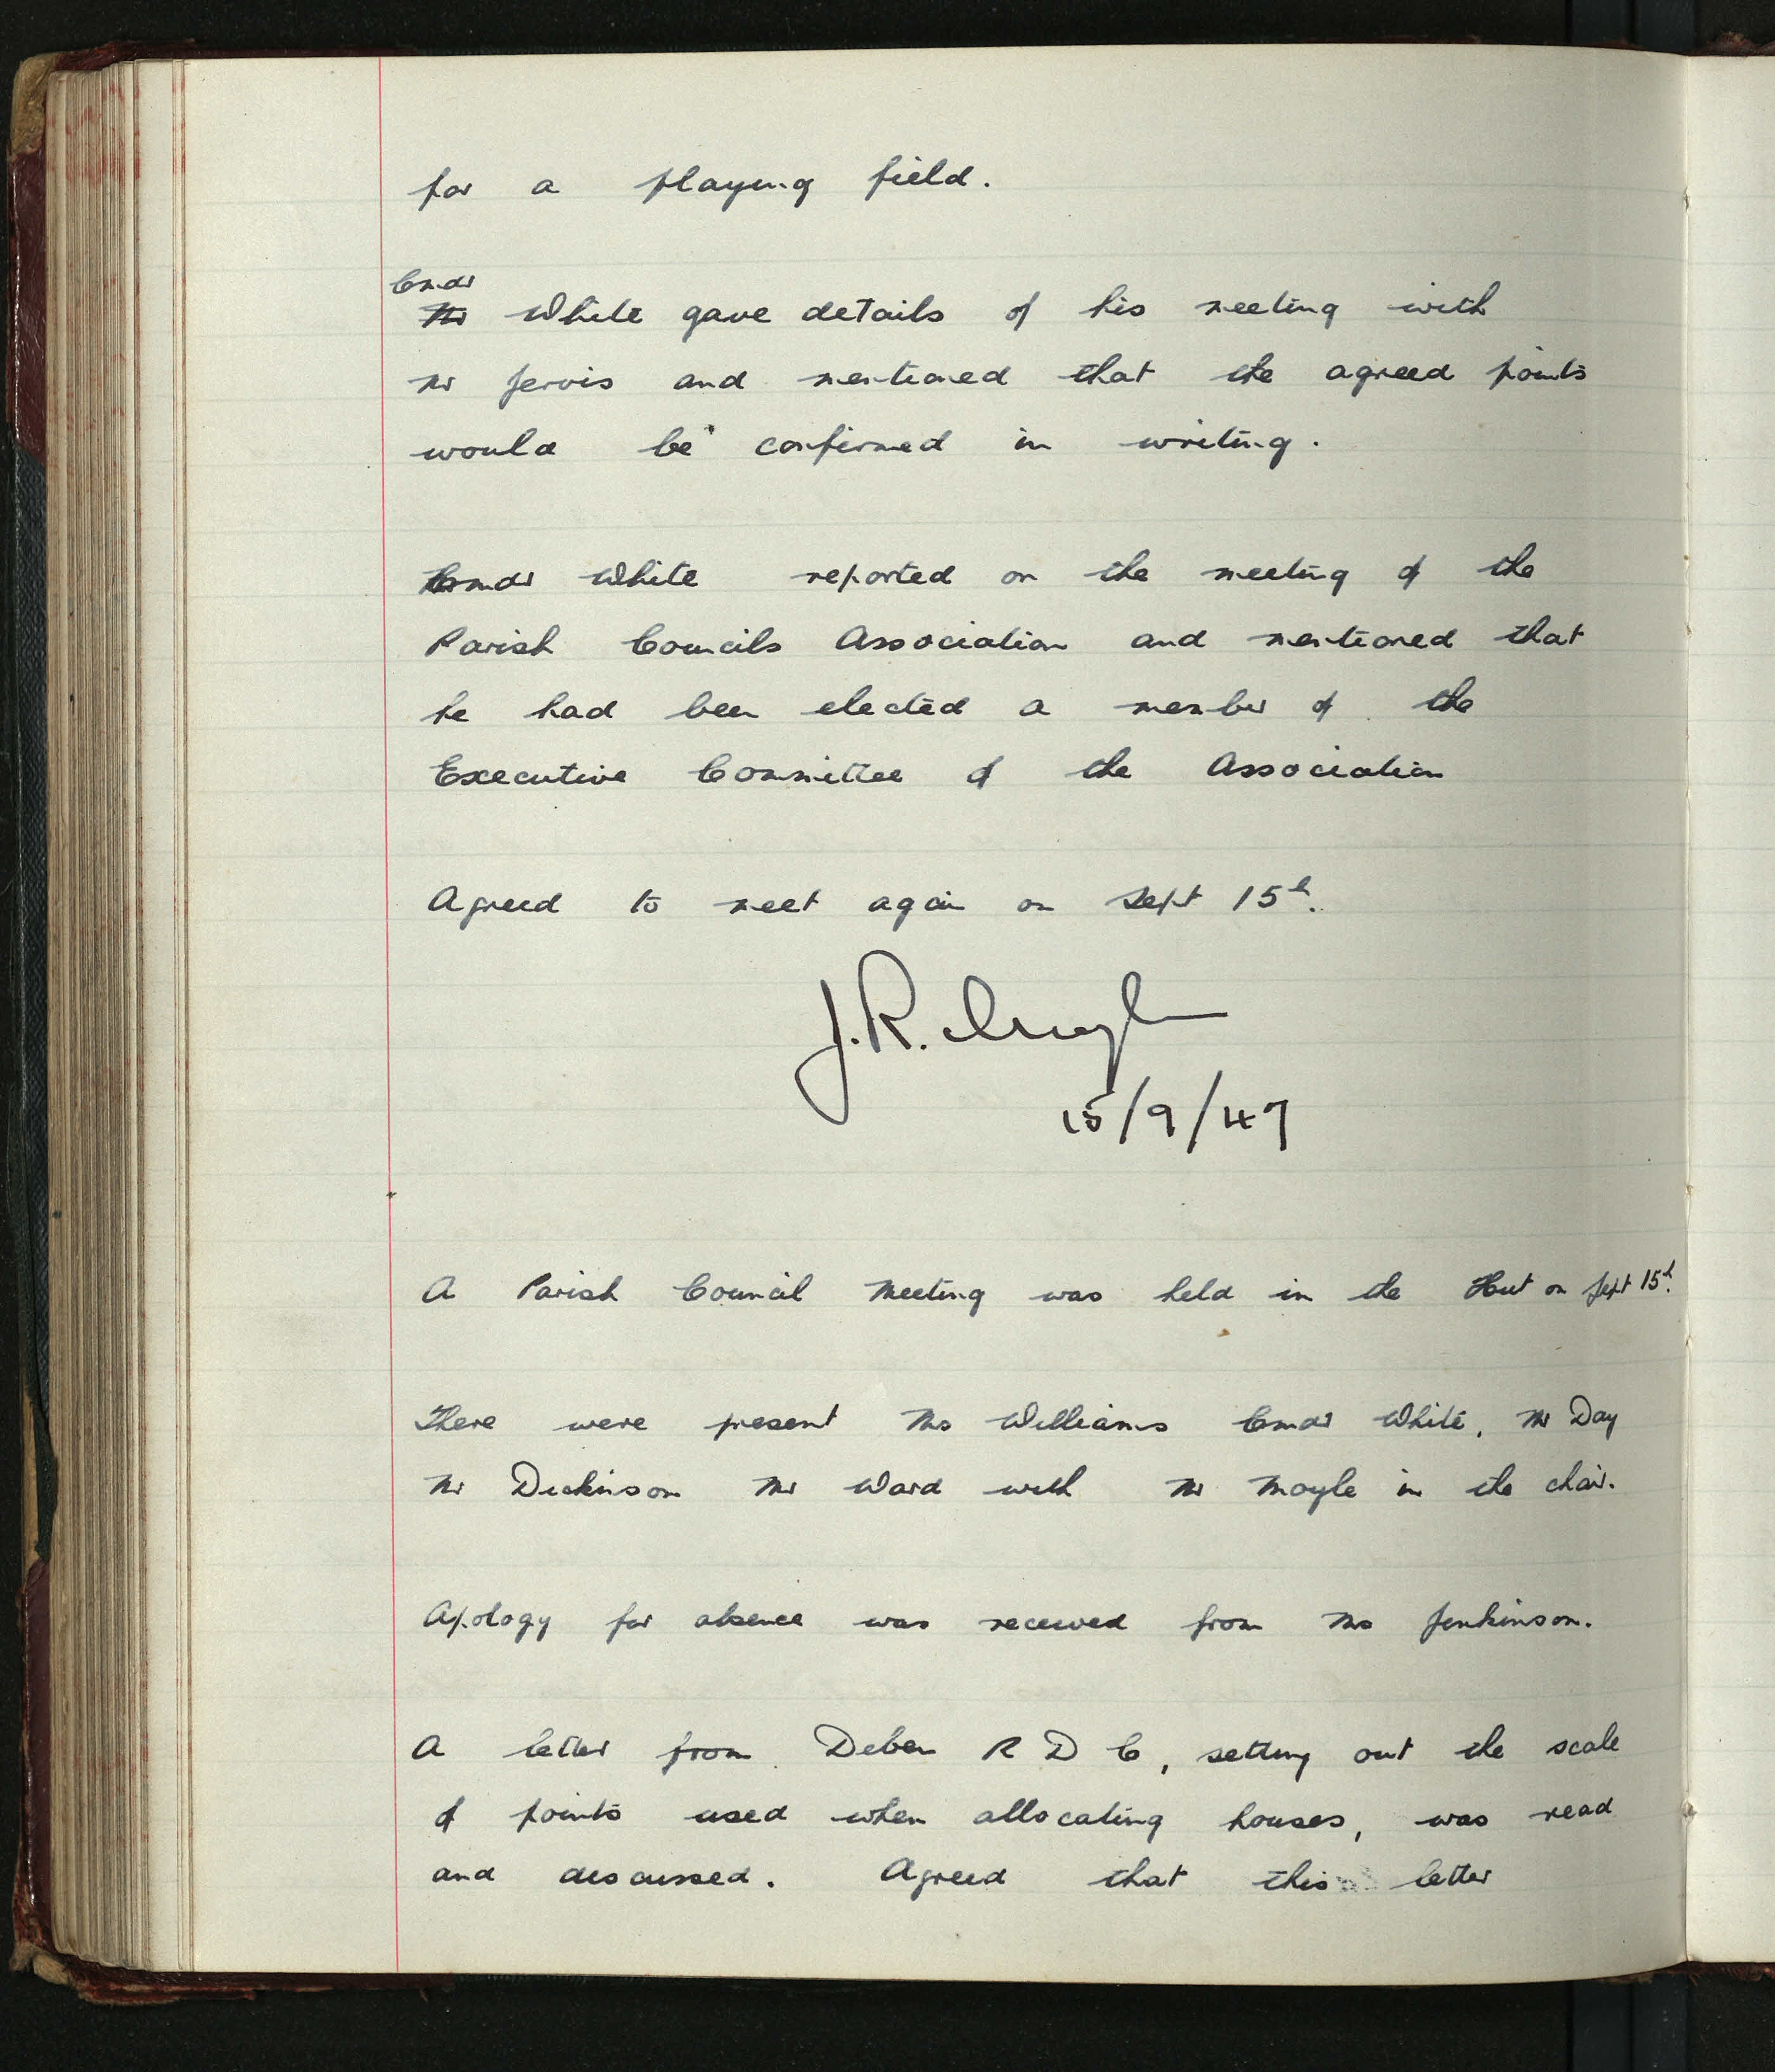 for a playing field.
Cmdr
Mr White gave details of his meeting with
Mr Jervis and mentioned that the agreed points
would be confirmed in writing.
Cmdr White reported on the meeting of the
Parish Councils Association and mentioned that
he had been elected a member of the
Executive Committee of the Association
Agreed to meet again on Sept 15th.
J.R. Moyle
15/9/47
A Parish Council Meeting was held in the Hut on Sept 15th.
There were present Mrs Williams Cmdr White, Mr Day
Mr Dickinson Mr Ward with Mr Moyle in the chair.
Apology for absence was received from Mrs Jenkinson.
A letter from Deben R D C, setting out the scale
of points used when allocating houses, was read
and discussed. Agreed that this letter